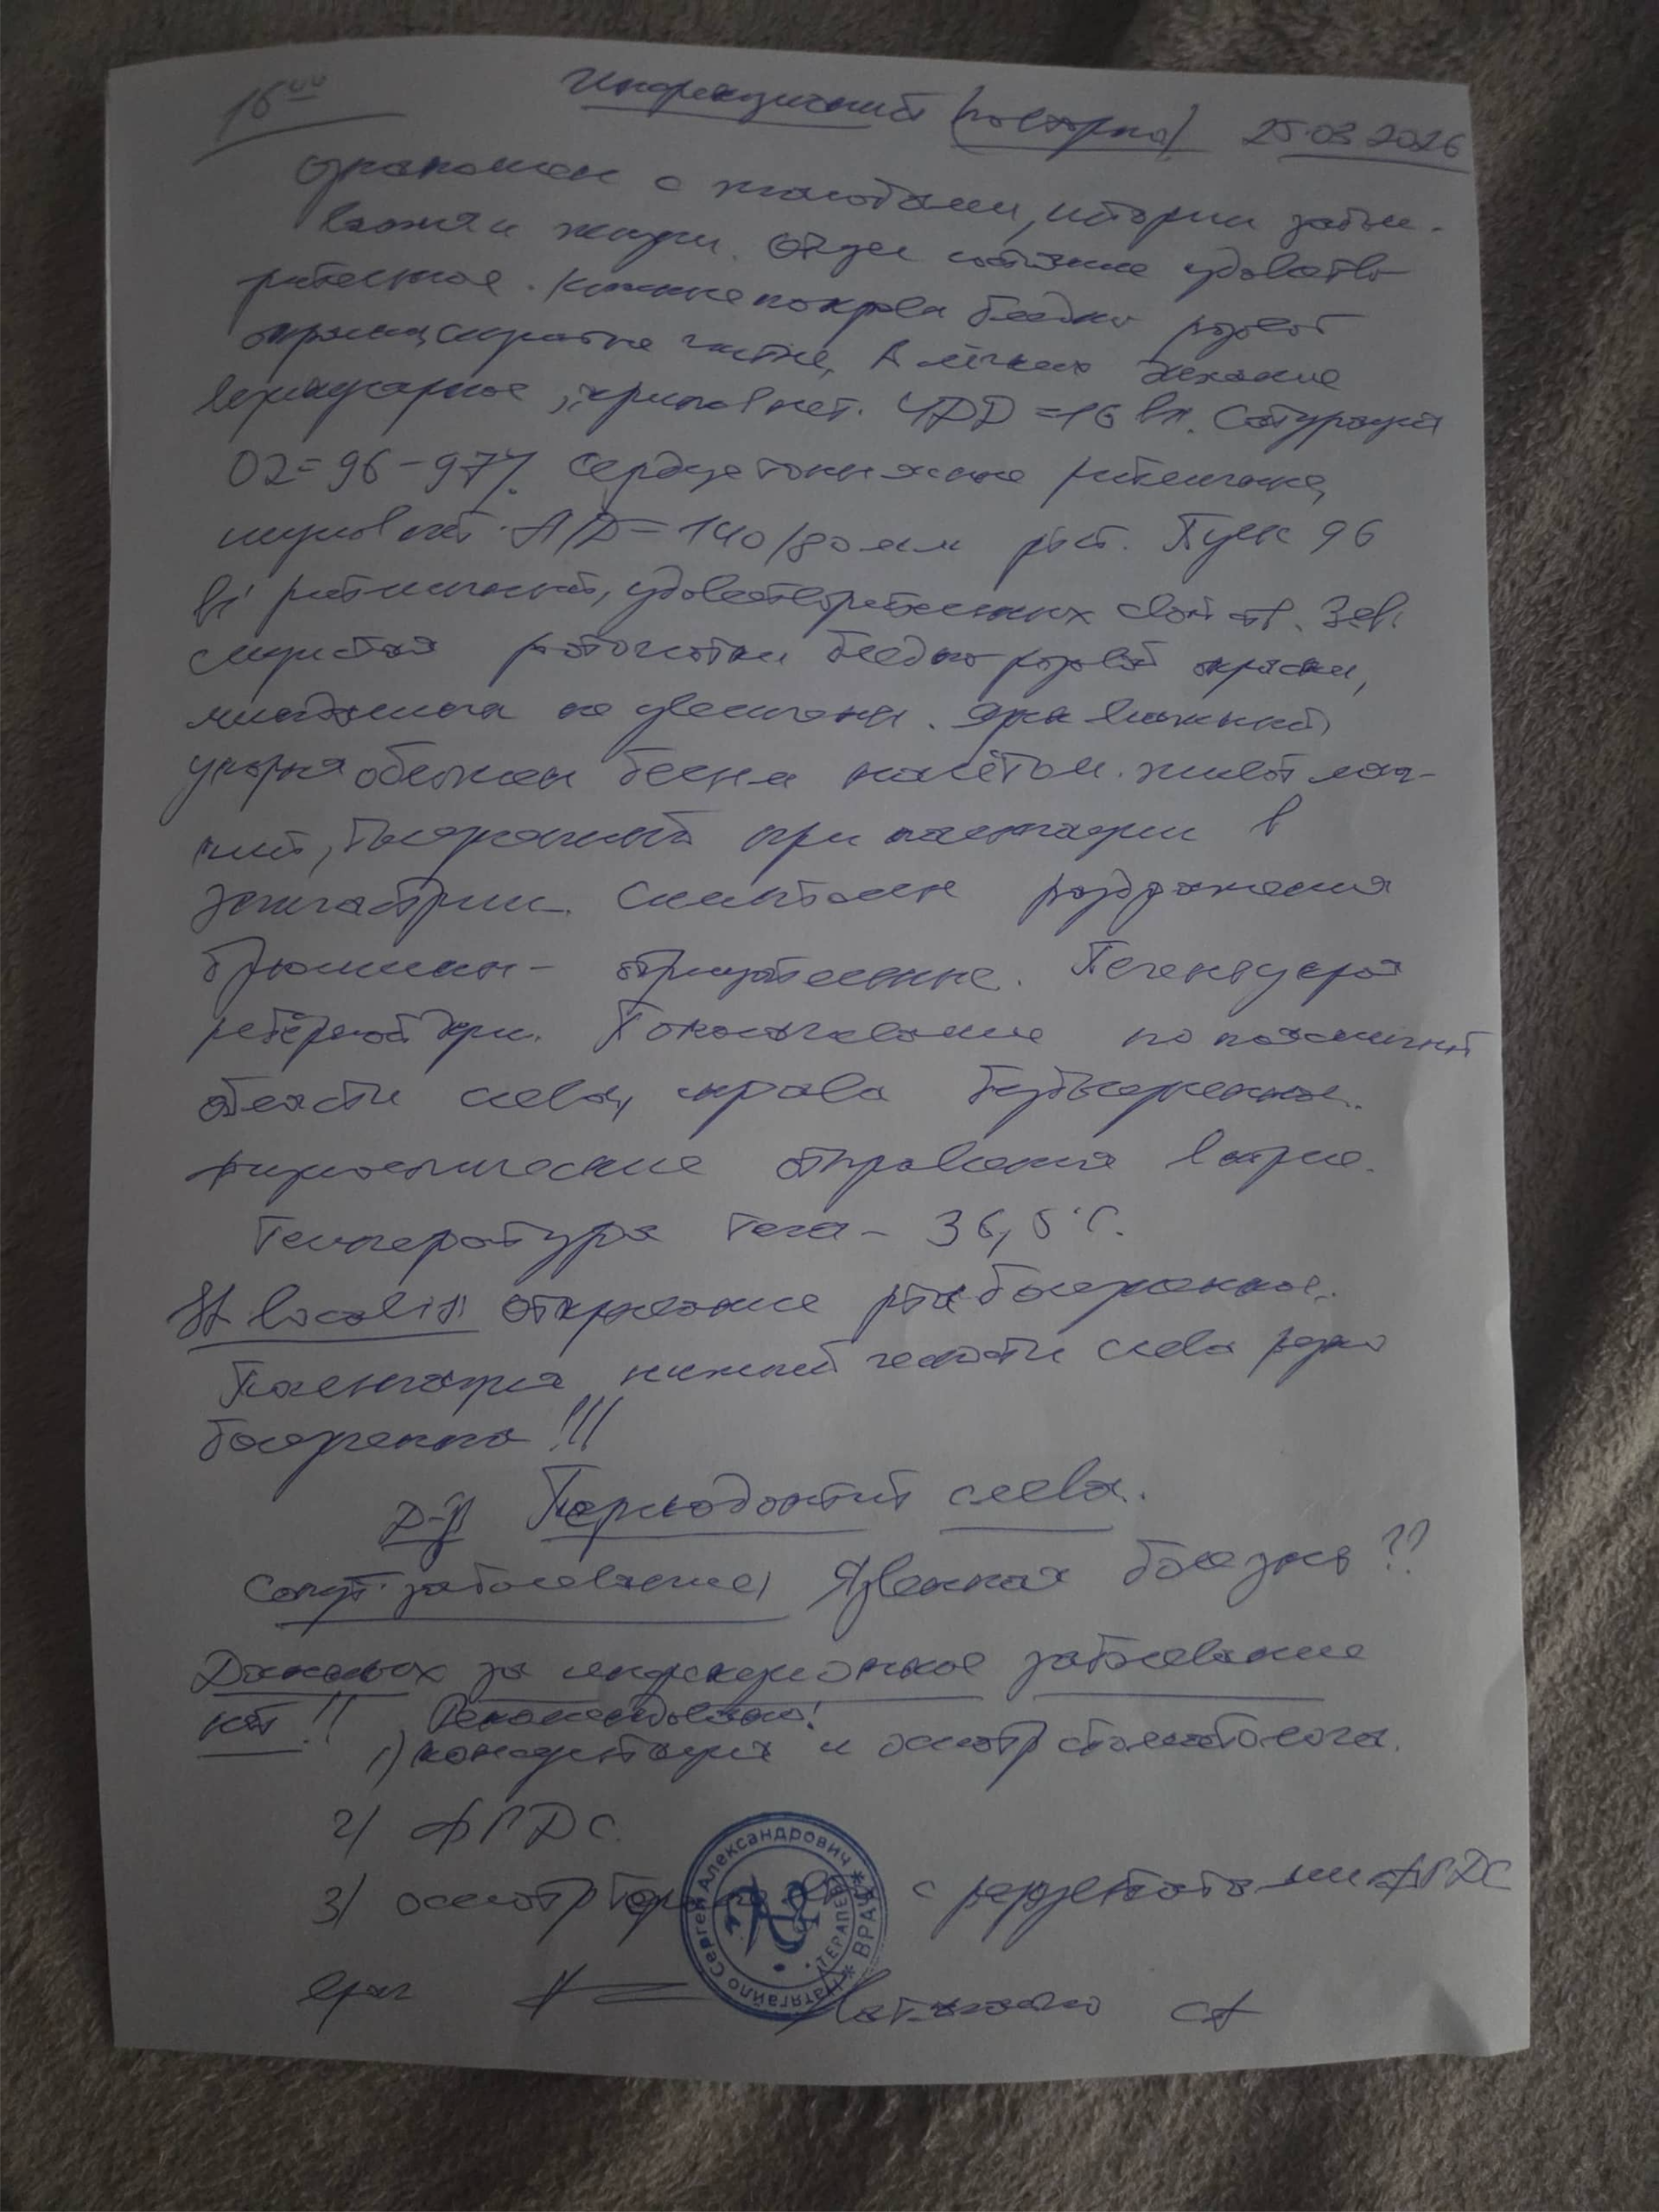 16⁰⁰ Инфекционист (повторно) 25.03.2026
Ознакомлен с жалобами, истории забле-
вания и жизни. Общее состояние удовлетво-
рительное. Кожные покровы бледно розовой
окраски, чистые, В лёгких дыхание
везикулярное, хрипов нет. ЧДД =16 в1'. Сатурация
O2=96-97%. Сердце тоны ясные ритмичные,
шумов нет. А/Д=140/80 мм рт.ст. Пульс 96
в1' ритмичный, удовлетворительных свойств. Зев.
слизистая ротоглотки бледно розовой окраски,
миндалины не увеличены. Язык влажный,
у корня обложен белым налётом. Живот мяг-
кий, болезненный при пальпации в
эпигастрии. Симптомы раздражения
брюшины- отрицательные. Печень у края
рёберной дуги. Поколачивание по поясничной
области слева, справа безболезненное.
Физиологические отправления в норме.
Температура тела- 36,5°С.
St. localis: открывание рта болезненное.
Пальпация нижней челюсти слева резко
болезненна!!!
Д-з: Периодонтит слева.
Сопут. заболевание: Язвенная болезнь??
Данных за инфекционное заболевание
нет!! Рекомендовано:
1) консультация и осмотр стоматолога.
2) ФГДС.
3) осмотр терапевта с результатами ФГДС
врач Натягайло СА
Натягайло Сергей Александрович * ВРАЧ *
ТЕРАПЕВТ